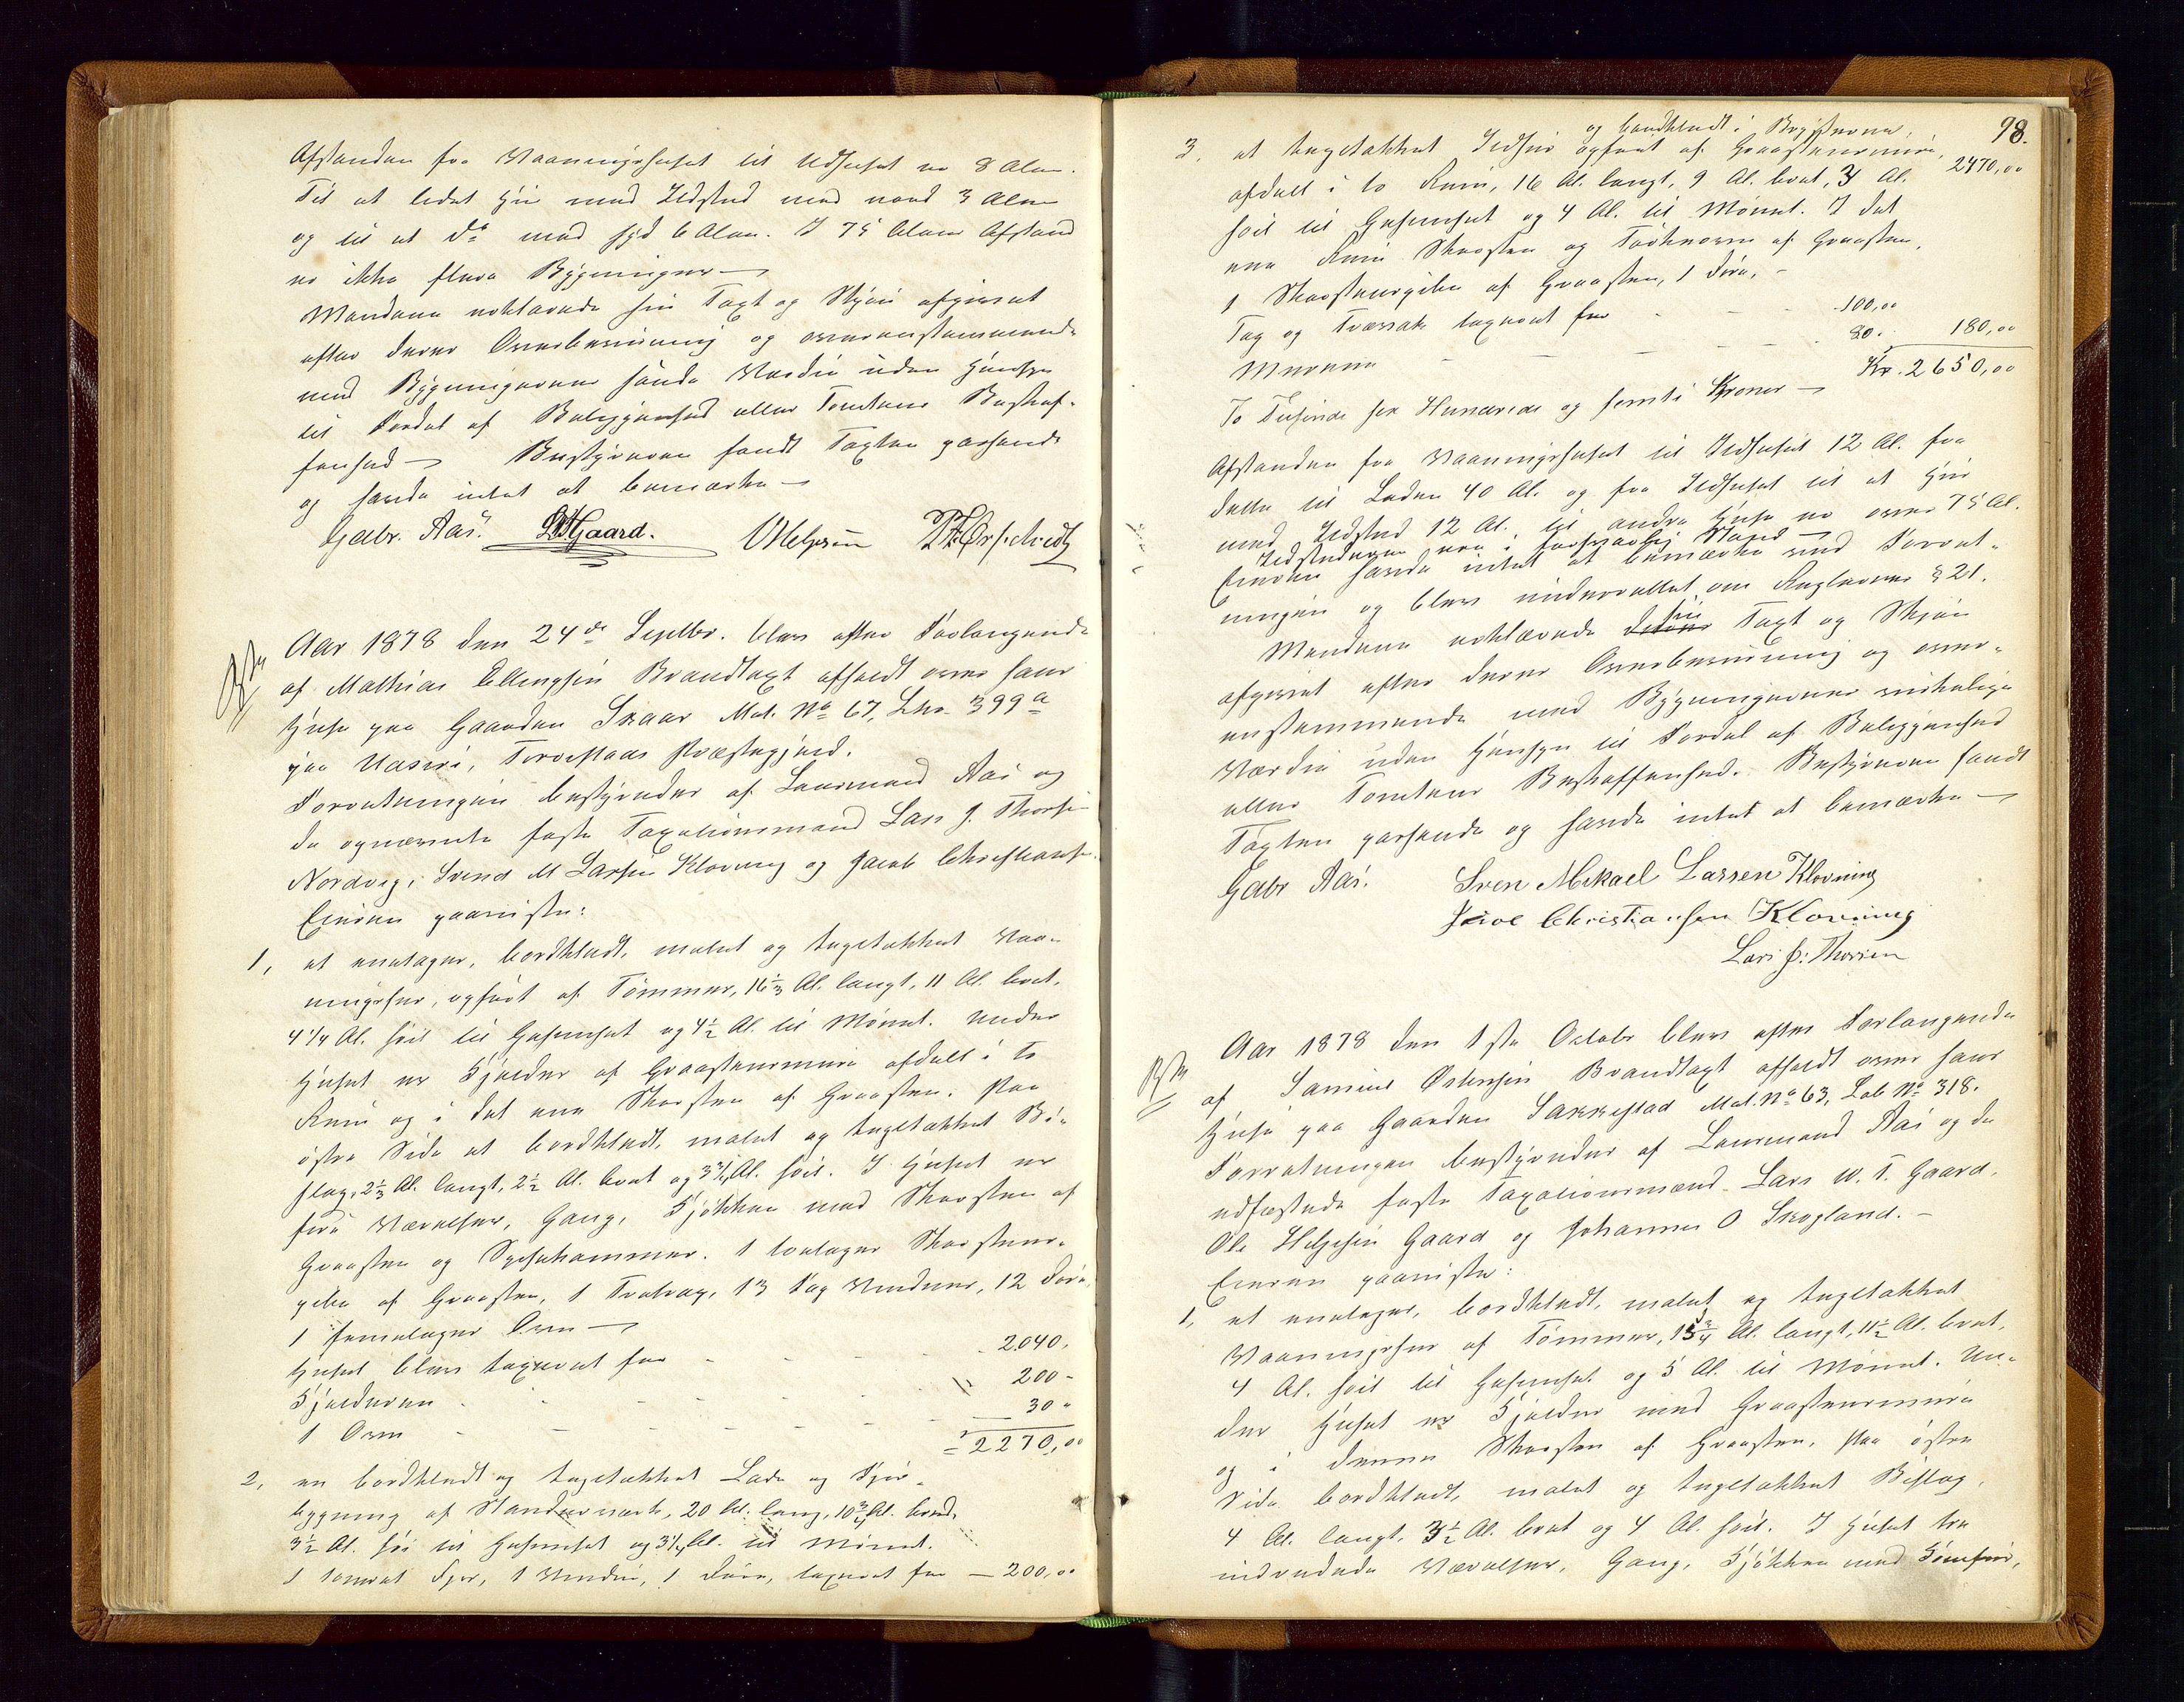 Afstanden fra Vaaningshuset til Udhuset er 8 Alen.
Til et lidet Huus med Ildsted mod nord 3 Alen
og til et do mod syd 6 Alen. I 75 Alens Afstand
er ikke flere Bygninger —
Mændene erklærede sin Taxt og Skjøn afgivet
efter deres Overbeviisning og overensstemmende
med Bygningernes sande Værdie uden Hensyn
til Fordel af Beliggenhed eller Tomtens Beskaf-
fenhed — Bestyreren fandt Taxten passende
og havde intet at bemærke —
Gdbr. Aas. Gaard. OHelgesen
Afst
Aar 1878 den 24de Septbr. blev efter Forlangende
af Mathias Ellingsen Brandtaxt afholdt over hans
Huse paa Gaarden Skaar Mat. No 67, Lbr. 399a
paa Udsire, Torvestads Præstegjeld.
Forretningen bestyredes af Lensmand Aas og
de opnævnte faste Taxationsmænd Lars J. Thorsen
Nordvig, Svend M Larsen Klovning og Jacob Christiansen.
Eieren paaviste:
1, et enetages, bordklædt, malet og tagtækket Vaa-
ningshus, opført af Tømmer, 16⅓ Al. langt, 11 Al. bredt,
4¼ Al. høit til Gesimset og 4½ Al. til Mønnet. Under
Huset er Kjælder af Graasteensmure afdelt i to
Rum og i det ene Skorsten af Graasten. Paa
østre Side et bordklædt, malet og tagtækket Bi-
slag, 2⅓ Al. langt, 2½ Al. bredt og 3¾ Al. høit. I Huset er
fire Værelser, Gang, Kjøkken med Skorsten af
Graasten og Spisekammer. 1 toetages Skorsteens-
pibe af Graasten, 1 Trætrap, 13 Fag Vinduer, 12 Døre,
1 femetages Ovn —
Huset blev taxeret for - - - 2,040.
Kjælderen - - - 200 -
1 Ovn - - - 30 -
= 2270,00
2, en bordklædt og tagtækket Lade og Fjøs-
bygning af Standerværk, 20 Al. lang, 10¾ Al. bred,
3½ Al. høi til Gesimset og 3¼ Al. til Mønnet.
1 tømret Fjøs, 1 Vindue, 1 Døre, taxeret for — 200,00
98.
og bordklædt i Brystene,
3, et tagtækket Ildhus opført af Graasteensmure,
afdelt i to Rum, 16 Al. langt, 9 Al. bredt, 3 Al. 2470,00
høit til Gesimset og 4 Al. til Mønnet. I det
ene Rum Skorsten og Tørkeovn af Graasten,
1 Skorsteenspibe af Graasten, 1 Døre, -
Tag og Tværvæk taxeret for - - - 100,00
Murene - - - 80. 180,00
Kr. 2650,00
To Tusinde sex Hundrede og femti Kroner —
Afstanden fra Vaaningshuset til Ildhuset 12 Al. fra
dette til Laden 40 Al. og fra Ildhuset til et Huus
med Ildsted 12 Al. til andre Huse er over 75 Al.
Ildstederne ere i forsvarlig Stand —
Eieren havde intet at bemærke ved Forret-
ningen og blev underrettet om Reglernes § 21.
sin
Mændene erklærede deres Taxt og Skjøn
afgivet efter deres Overbeviisning og over-
ensstemmende med Bygningernes virkelige
Værdie uden Hensyn til Fordel af Beliggenhed
eller Tomtens Beskaffenhed. Bestyreren fandt
Taxten passende og havde intet at bemærke —
Gdbr Aas. Sven Mikael Larsen Klovning
Christiansen Klovning
Lars J. Thorsen
Afst
Aar 1878 den 1ste Octobr blev efter Forlangende
af Samuel Østensen Brandtaxt afholdt over hans
Huse paa Gaarden Sakkestad Mat. No 63, Løb No 318.
Forretningen bestyredes af Lensmand Aas og de
edfæstede faste Taxationsmænd Lars W. T. Gaard,
Ole Helgesen Gaard og Johannes O Skogland. —
Eieren paaviste:
1, et enetages, bordklædt, malet og tagtækket
Vaaningshus af Tømmer, 15¾ Al. langt, 11½ Al. bredt,
4 Al. høit til Gesimset og 5 Al. til Mønnet. Un-
der Huset er Kjælder med Graasteensmure
og i denne Skorsten af Graasten, Paa østre
Side bordklædt, malet og tagtækket Bislag,
4 Al. langt, 3½ Al. bredt og 4 Al. høit. I Huset tre
indredede Værelser, Gang, Kjøkken med Komfur,